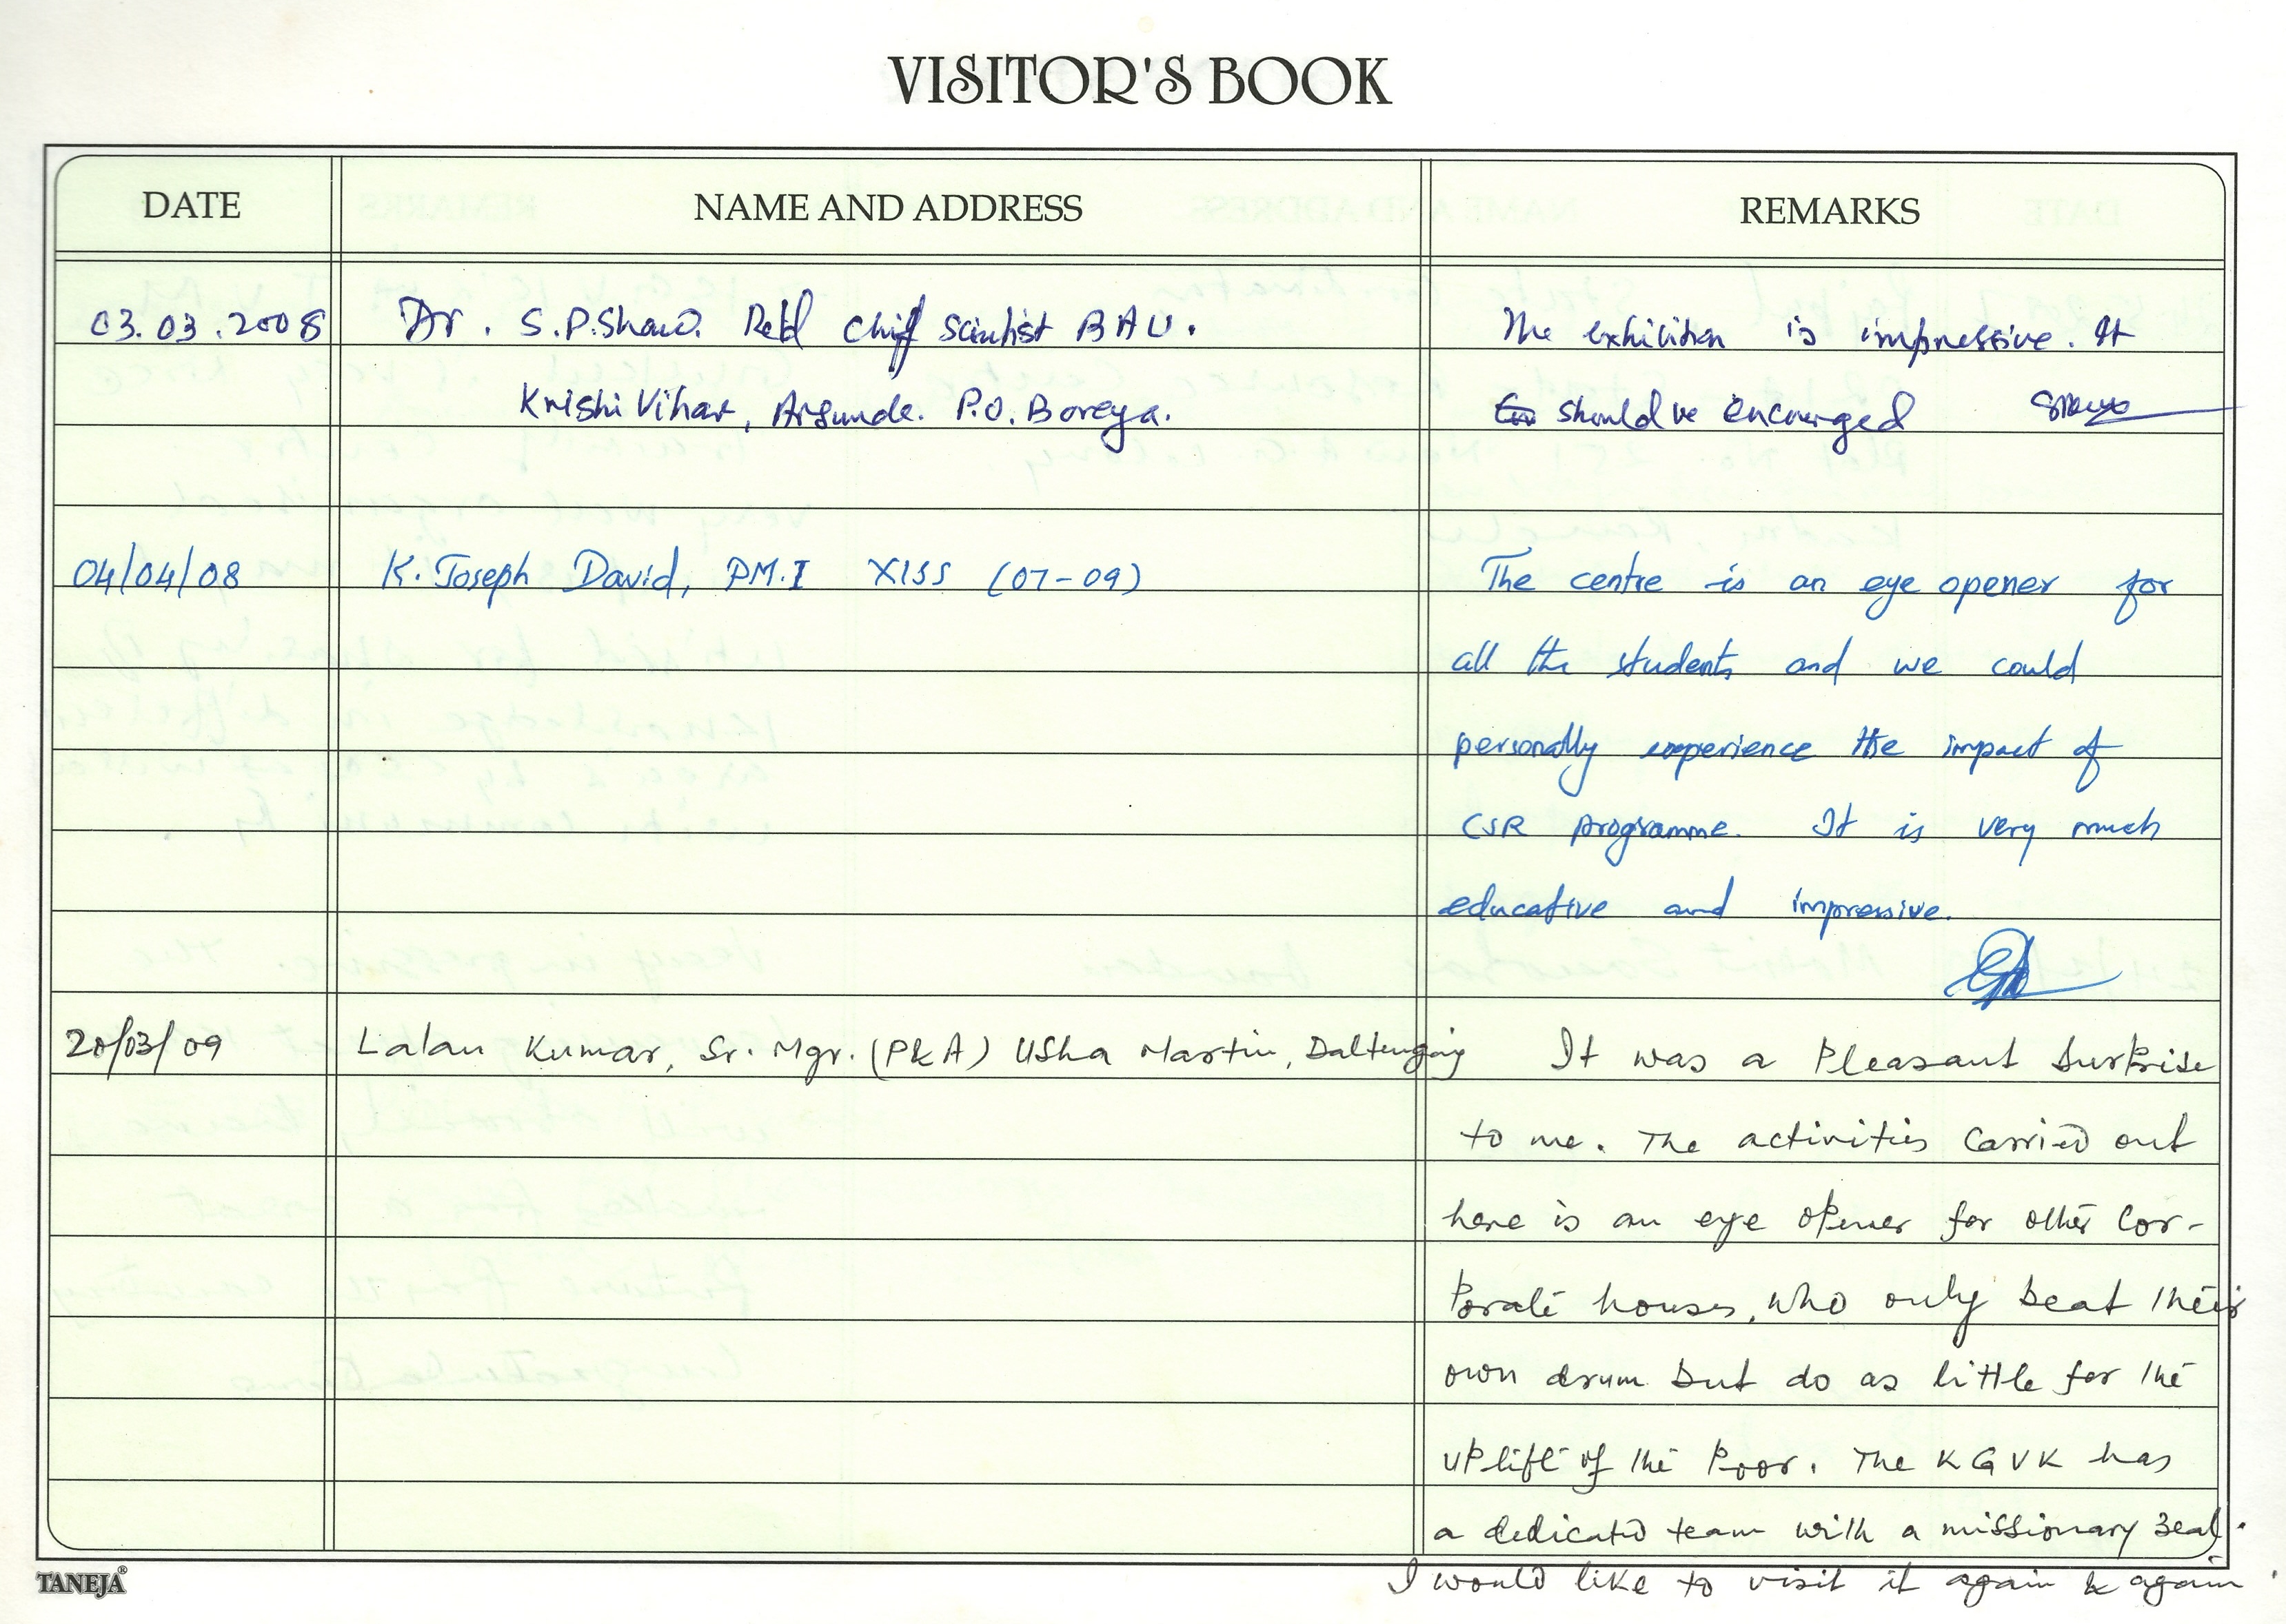 VISITOR'S BOOK
DATE NAME AND ADDRESS REMARKS
03.03.2008 Dr. S.P.Shaw. Retd Chief Scientist BAU. The exhibition is impressive. It
Krishi Vihar, Arsunde. P.O. Boreya. should ve encourged
04/04/08 K. Joseph David, PM.I XISS (07-09) The centre is an eye opener for
all the students and we could
personally experience the impact of
CSR programme. It is very much
educative and impressive.
20/03/09 Lalan Kumar, Sr. Mgr. (P&A) Usha Martin, Daltenganj It was a Pleasant Surprise
to me. The activities carried out
here is an eye opener for other Cor-
porate houses, who only beat their
own drum but do as little for the
uplift of the poor. The KGVK has
a dedicated team with a missionary zeal.
I would like to visit it again & again.
TANEJA®